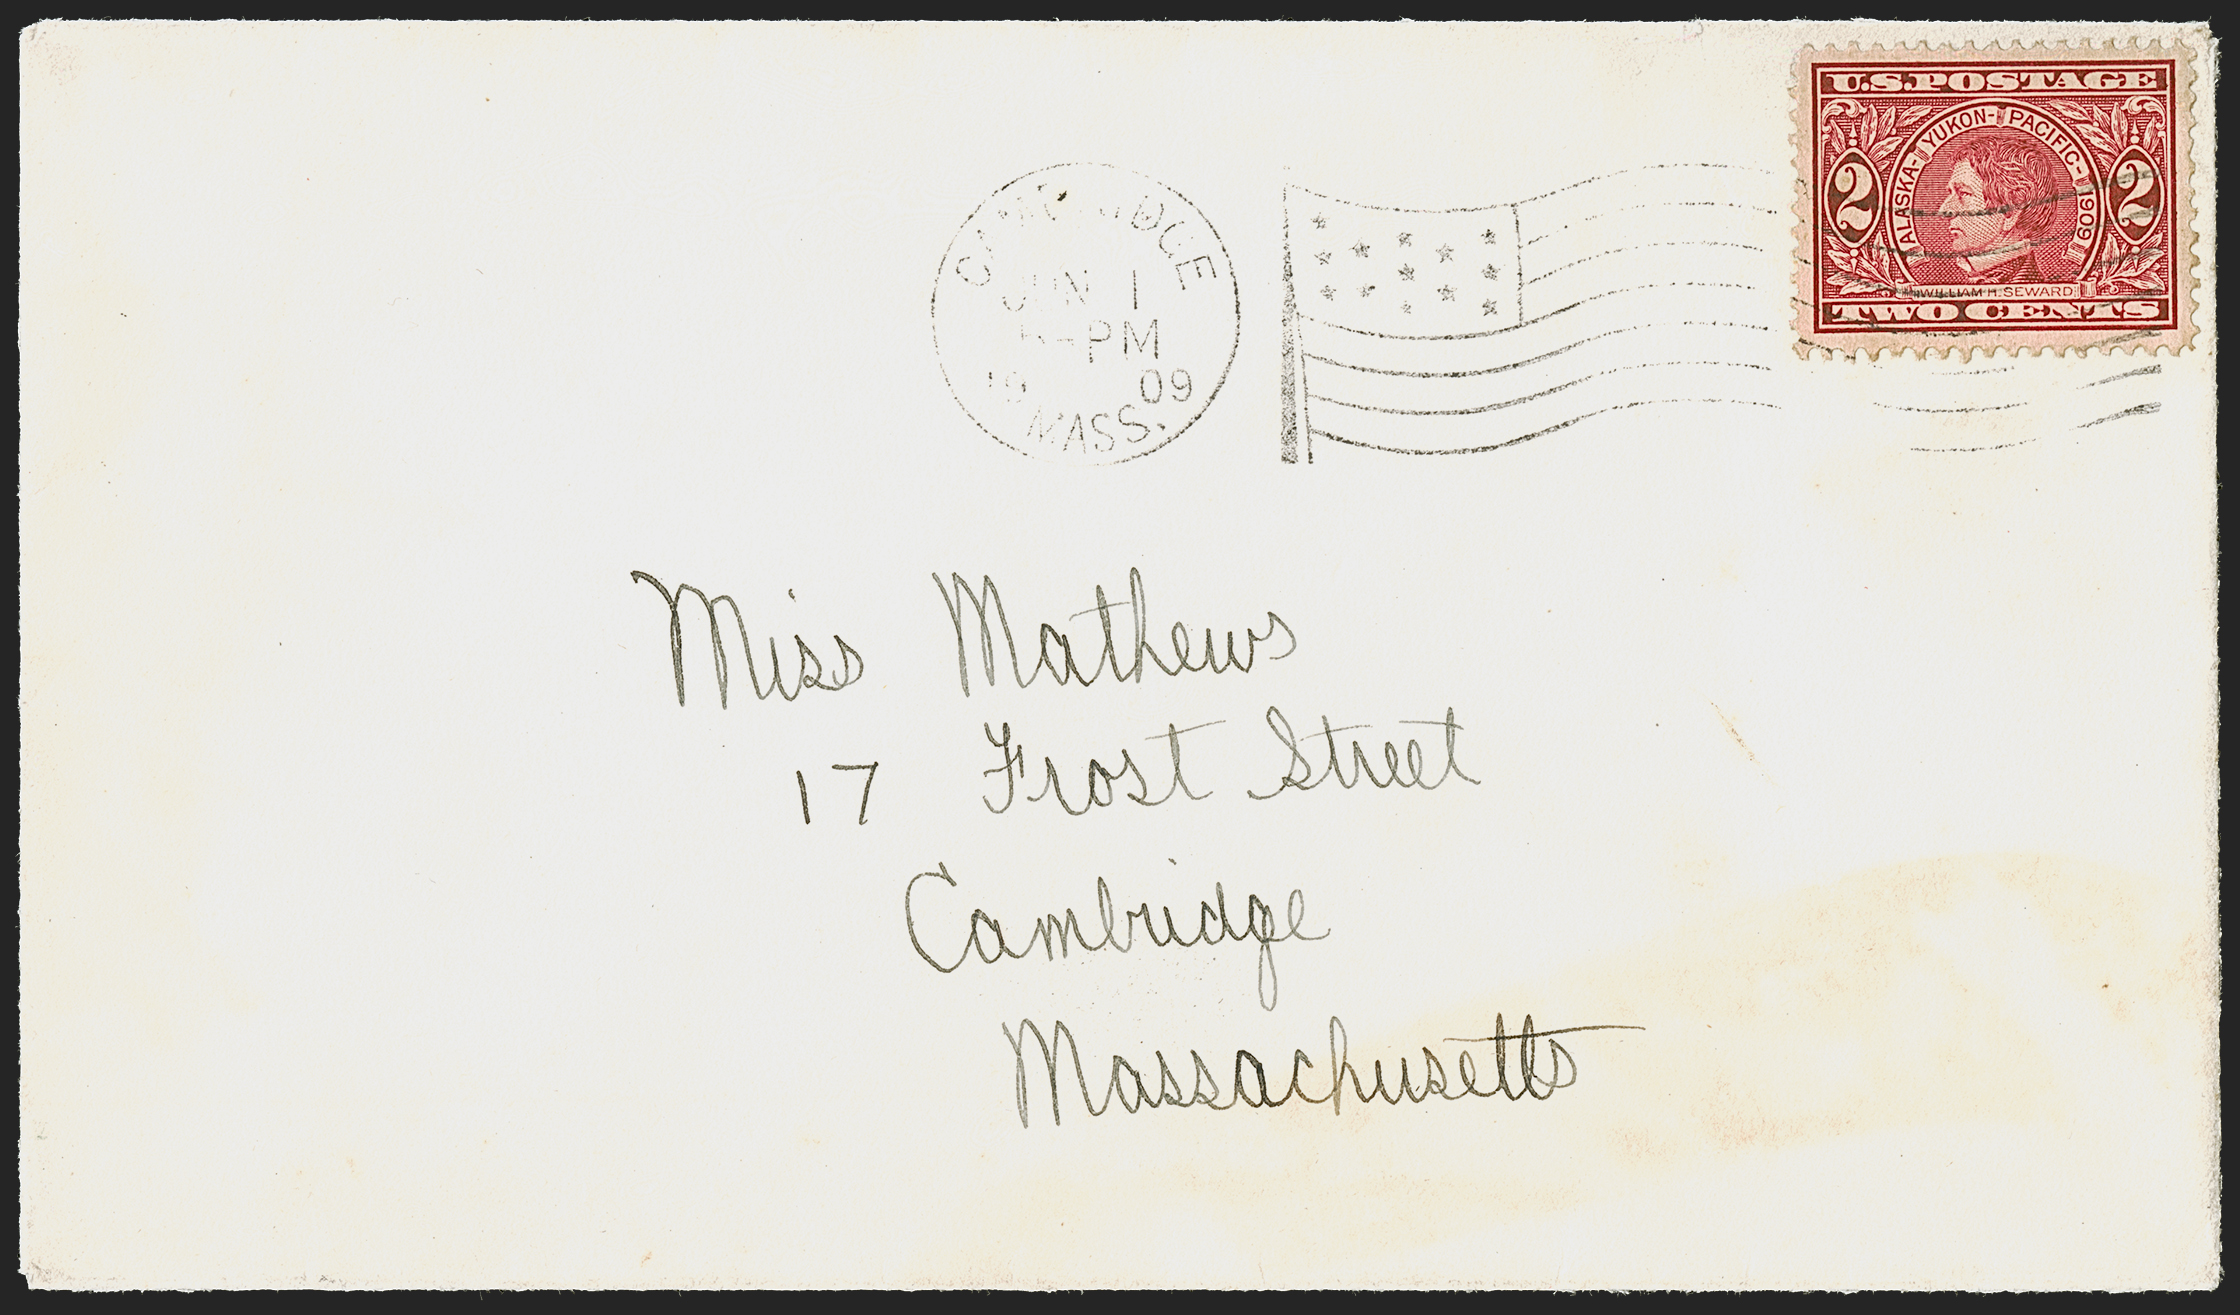 U.S. POSTAGE
ALASKA-YUKON-PACIFIC-1909
2 2
WILLIAM H. SEWARD
TWO CENTS
CAMBRIDGE
JUN 1
PM
19 09
MASS.
Miss Mathews
17 Frost Street
Cambridge
Massachusetts